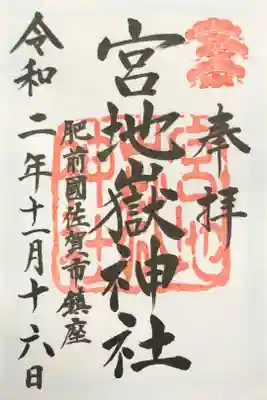 奉拝
宮地嶽神社
肥前國佐賀市鎮座
令和二年十一月十六日
宮地嶽神社